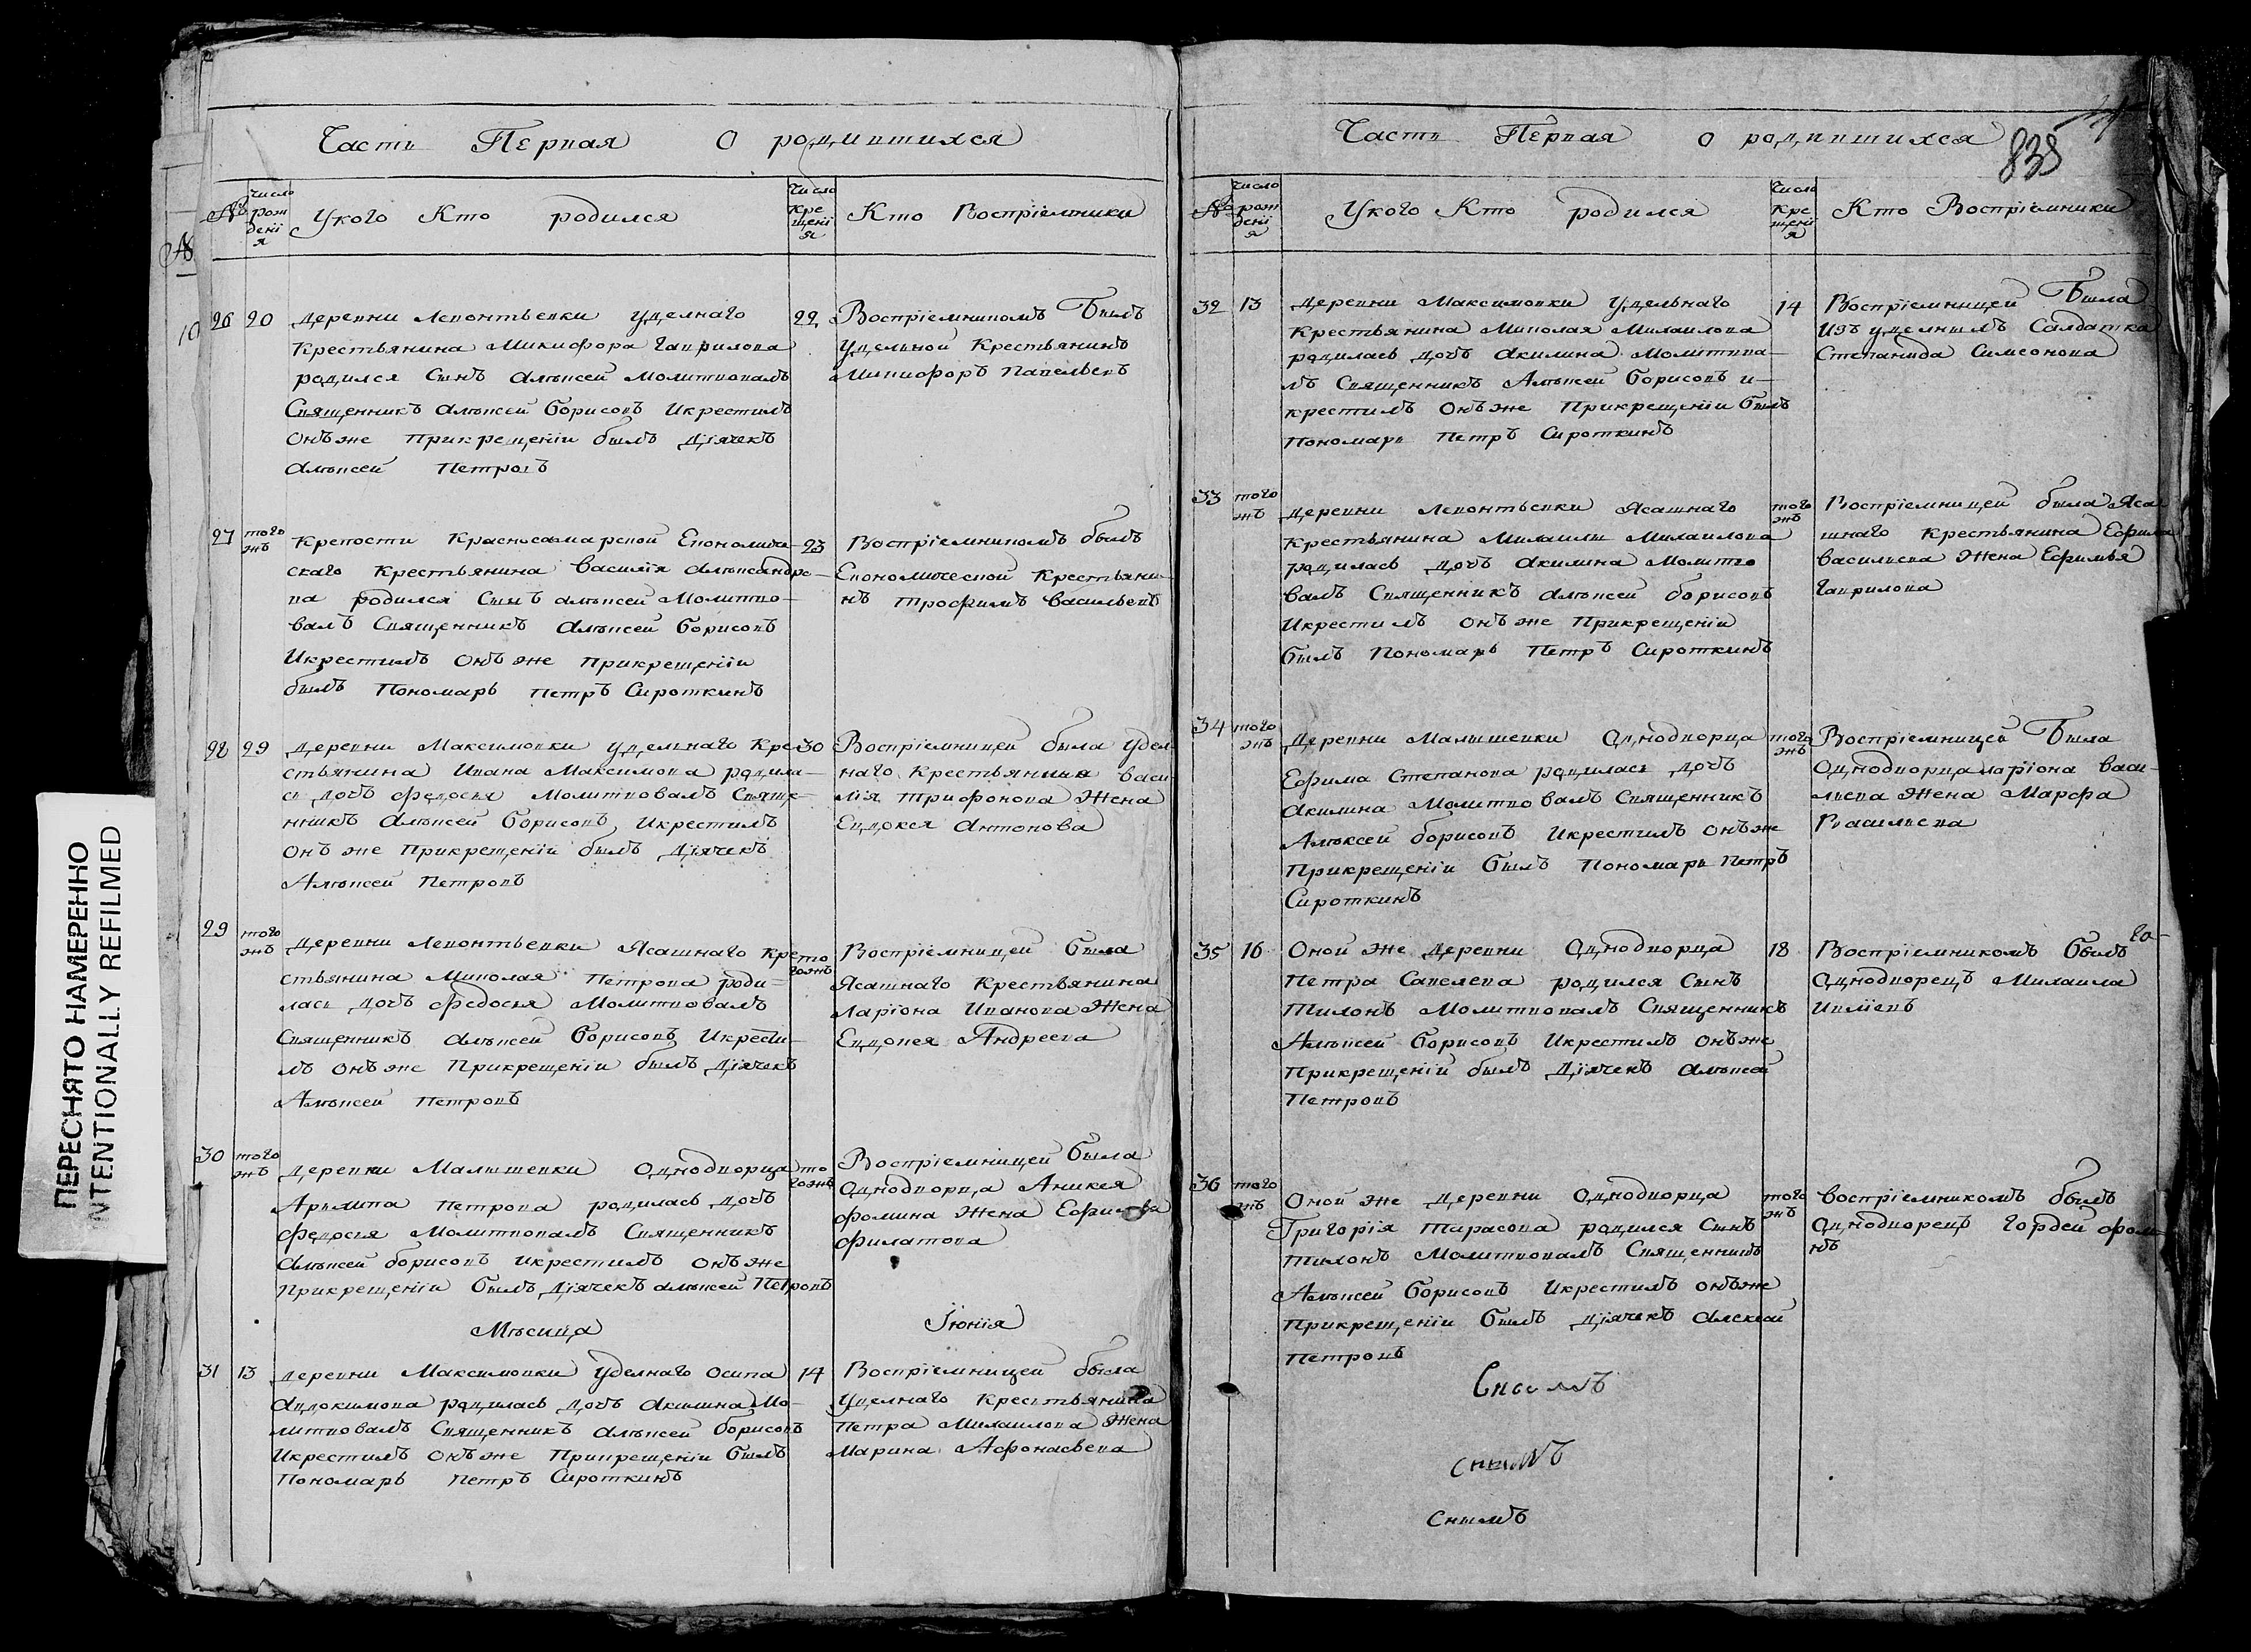 ПЕРЕСНЯТО НАМЕРЕННО
INTENTIONALLY REFILMED
Часть Первая О родившихся
№
Число рож дені я
У кого Кто родился
Число Кре щені я
Кто Воспріемники
26 20 деревни Леонтьевки уделнаго 22
Крестьянина Микифора Гаврилова
родился Сынъ Алѣксей Молитвовалъ
Священникъ Алѣксей Борисовъ Икрестилъ
Онъ же Прикрещеніи былъ Дїячекъ
Алѣксей Петровъ
Воспріемникомъ Былъ
Удельной Крестьянинъ
Микифоръ Павельевъ
27 того жъ Крепости Красносамарской Економиче- 23
скаго Крестьянина Василїя Алѣксандро-
ва родился Сынъ Алѣксей Молитво-
валъ Священникъ Алѣксей Борисовъ
Икрестилъ Онъ же прикрещеніи
былъ Пономарь Петръ Сироткинъ
Воспріемникомъ былъ
Економической Крестьяни-
нъ Трофимъ Васильевъ
28 29 деревни Максимовки удельнаго Кре- 30
стьянина Ивана Максимова родила-
сь дочь Федосья Молитвовалъ Свяще-
нникъ Алѣксей Борисовъ Икрестилъ
Онъ же Прикрещеніи былъ Дїячекъ
Алѣксей Петровъ
Воспріемницей была удел-
наго Крестьянина Васи-
лїя Трифонова Жена
Евдокея Антонова
29 того жъ Деревни Левонтьевки Ясашнаго Кре- то гожъ
стьянина Миколая Петрова роди-
лась дочь Федосья Молитвовалъ
Священникъ Алѣксей Борисовъ Икрести-
лъ онъ же Прикрещеніи былъ Дїячекъ
Алѣксей Петровъ
Воспріемницей была
Ясашнаго Крестьянина
Ларїона Иванова Жена
Евдокея Андреева
30 того жъ Деревни Малышевки Однодворца то гожъ
Петрова родилась дочь
Федосья Молитвовалъ Священникъ
Алѣксей Борисовъ Икрестилъ онъ же
Прикрещеніи былъ Дїячекъ Алѣксей Петровъ
Воспріемницей была
Однодворца Аникея
Фомина Жена
Филатова
Мѣсяца Їюнїя
31 13 деревни Максимовки уделнаго Осипа 14
Авдокимова родилась дочь Акилина Мо-
литвовалъ Священникъ Алѣксей Борисовъ
Икрестилъ Онъ же Прикрещеніи былъ
Пономарь Петръ Сироткинъ
Воспріемницей была
Уделнаго Крестьянина
Петра Михаилова Жена
Марина Афонасьева
Часть Первая О родившихся
835
№
Число рож дені я
У кого Кто родился
Число Кре щені я
Кто Воспріемники
32 13 Деревни Максимовки Удельнаго 14
Крестьянина Миколая Михаилова
родилась дочь Акилина Молитвва-
лъ Священникъ Алѣксей Борисовъ и-
крестилъ онъ же Прикрещеніи былъ
Пономарь Петръ Сироткинъ
Воспріемницей Была
Изъ уделныхъ Салдатка
Степанида Симеонова
33 того жъ Деревни Левонтьевки Ясашнаго того жъ
Крестьянина Михаилы Михаилова
родилась дочь Акилина Молитво
валъ Священникъ Алѣксей Борисовъ
Икрестилъ Онъ же Прикрещеніи
былъ Пономарь Петръ Сироткинъ
Воспріемницей была Яса
шнаго Крестьянина Ефима
Васильева Жена Ефимья
Гаврилова
34 того жъ Деревни Малышевки Однодворца того жъ
Ефима Степанова родилась дочь
Акилина Молитвовалъ Священникъ
Алѣксей Борисовъ Икрестилъ онъ же
Прикрещеніи былъ Пономарь Петръ
Сироткинъ
Воспріемницей Была
Однодворца Ларїона Васи-
льева Жена Марфа
Васильева
35 16 Оной же Деревни Однодворца 18
Петра Савелева родился Сынъ
Тихонъ Молитвовалъ Священникъ
Алѣксей Борисовъ Икрестилъ онъ же
Прикрещеніи былъ Дїячекъ Алѣксей
Петровъ
Воспріемникомъ былъ
Однодворецъ Михаила
36 того жъ Оной же Деревни Однодворца того жъ
Григорїя Тарасова родился Сынъ
Тихонъ Молитвовалъ Священникъ
Алѣксей Борисовъ Икрестилъ онъ же
Прикрещеніи былъ Дїячекъ Алексей
Петровъ
воспріемникомъ былъ
Однодворецъ Гордей Фоми
нъ